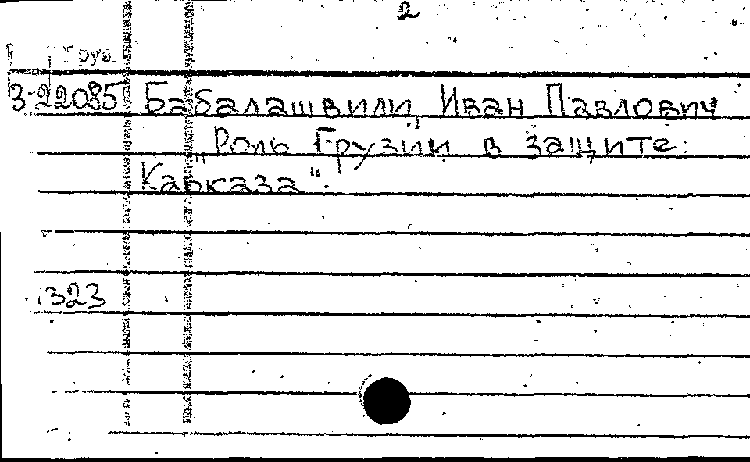 2
Груз.
3-22085 Бабалашвили, Иван Павлович
„Роль Грузии в защите
Кавказа".
323